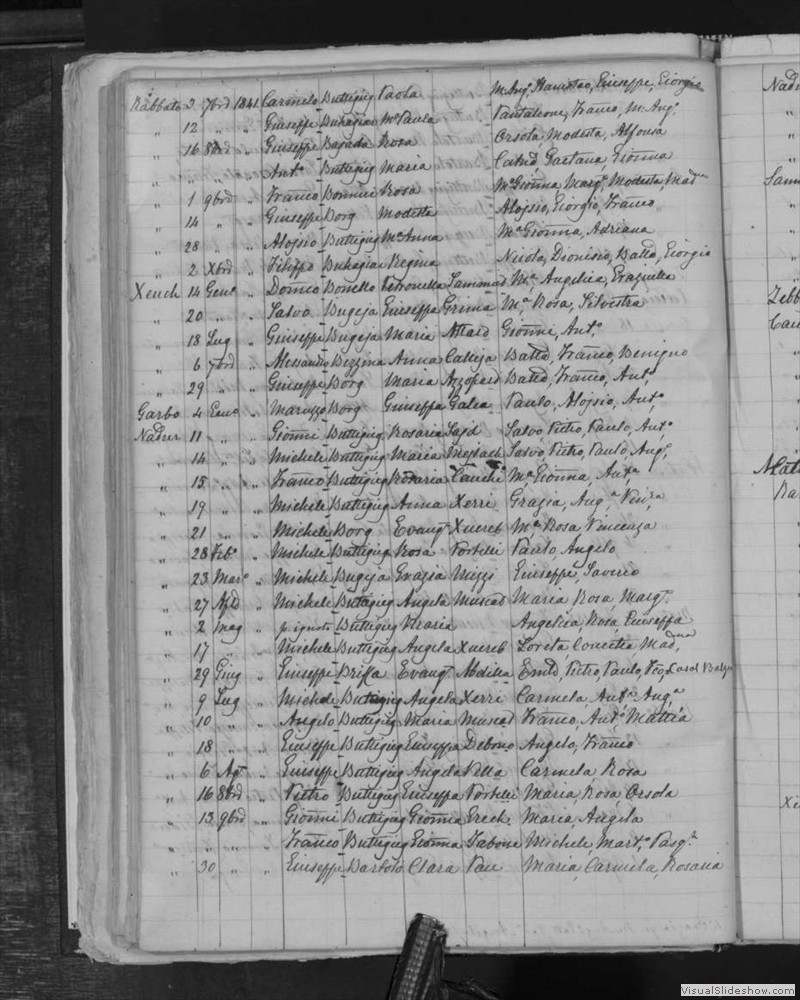 Rabbato 3 7brd 1841 Carmelo Buttigieg Paola M. Ang.ª Giuseppe, Giorgio
" 12 " " Giuseppe Buhagiar M.ª Paula Pantaleone, Franco, M. Ang.º
" 16 8brd " Giuseppe Bajada Rosa Orsola, Modesta, Alfonsa
" " " " Ant.º Buttigieg Maria Gaetana Gionna
" 1 9brd " Franco Bonnici Rosa M.ª Gionna Marg.ª Modesta Mad.na
" 14 " " Giuseppe Borg Modesta Alojsio, Giorgio, Franco
" 28 " " Alojsio Buttigieg M.ª Anna M.ª Gionna, Adriana
" 2 Xbrd " Filippo Buhagiar Regina Nicola, Dionisio, Batta, Giorgio
Xeuch 14 Gen.º " Domco Bonello Petronella Sammad M.ª Angelica, Graziulla
" 20 " " Salvo Bugeja Giuseppa Grima M.ª Rosa, Silvestra
" 18 Lug " Giuseppe Bugeja Maria Attard Gionni, Ant.º
" 6 7brd " Alessandro Bezzina Anna Calleja Batta, Franco, Benigno
" 29 " " Giuseppe Borg Maria Azzopard Batta, Franco, Ant.º
Garbo 4 Gen.º " Maruzzo Borg Giuseppa Galea Paulo, Alojsio, Ant.º
Nadur 11 " " Gionni Buttigieg Rosaria Said Salvo, Pietro, Paulo, Ant.º
" 14 " " Michele Buttigieg Maria Mejlach Salvo, Pietro, Paulo, Ang.º
" 15 " " Franco Buttigieg Rosaria Cauchi M.ª Gionna, Ant.ª
" 19 " " Michele Buttigieg Anna Xerri Grazia, Ang.ª Vin.za
" 21 " " Michele Borg Evang.ª Xuereb M.ª Rosa Vincenza
" 28 Feb.º " Michele Buttigieg Rosa Portelli Paulo, Angelo
" 23 Mar.º " Michele Bugeja Grazia Mizzi Giuseppe, Saverio
" 27 Apl " Michele Buttigieg Angela Muscad Maria Rosa, Marg.ª
" 2 Mag " p. ignoto Buttigieg Maria Angelica, Rosa, Giuseppa
" 17 " " Michele Buttigieg Angela Xuereb Loreta Concetta Mad.na
" 29 Giug " Giuseppe Briffa Evang.ª Abdilla Emld, Pietro, Paulo, Fco, Casal Balzan
" 9 Lug " Michele Buttigieg Angela Xerri Carmela, Ant.ª Ang.ª
" 10 " " Angelo Buttigieg Maria Muscad Franco, Ant.º Mattia
" 18 " " Giuseppe Buttigieg Giuseppa Debono Angelo, Franco
" 6 Agt " Giuseppe Buttigieg Angela Vella Carmela Rosa
" 16 8brd " Pietro Buttigieg Giuseppa Portelli Maria, Rosa, Orsola
" 13 9brd " Gionni Buttigieg Gionna Grech Maria Angela
" " " " Franco Buttigieg Gionna Tabone Michele, Mart.º Pasq.le
" 30 " " Giuseppe Bartolo Clara Pau Maria, Carmela, Rosaria
VisualSlideshow.com